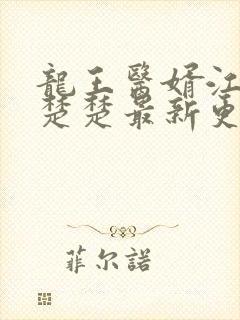 龍王醫婿江
楚楚最新更
菲尔諾